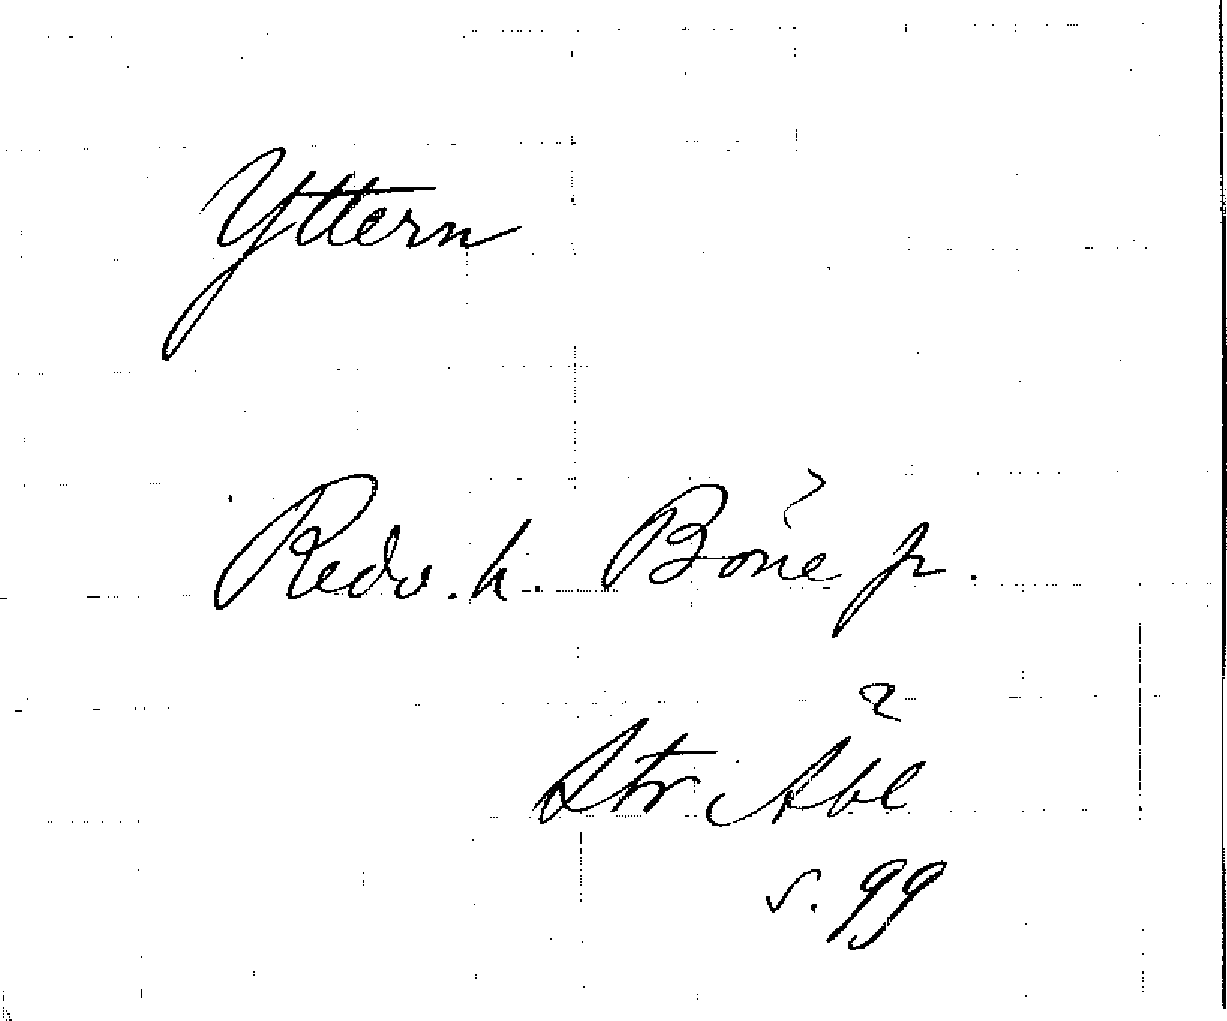 Yttern
Redv. h. Bone p.
Str. Åbl
s. 99